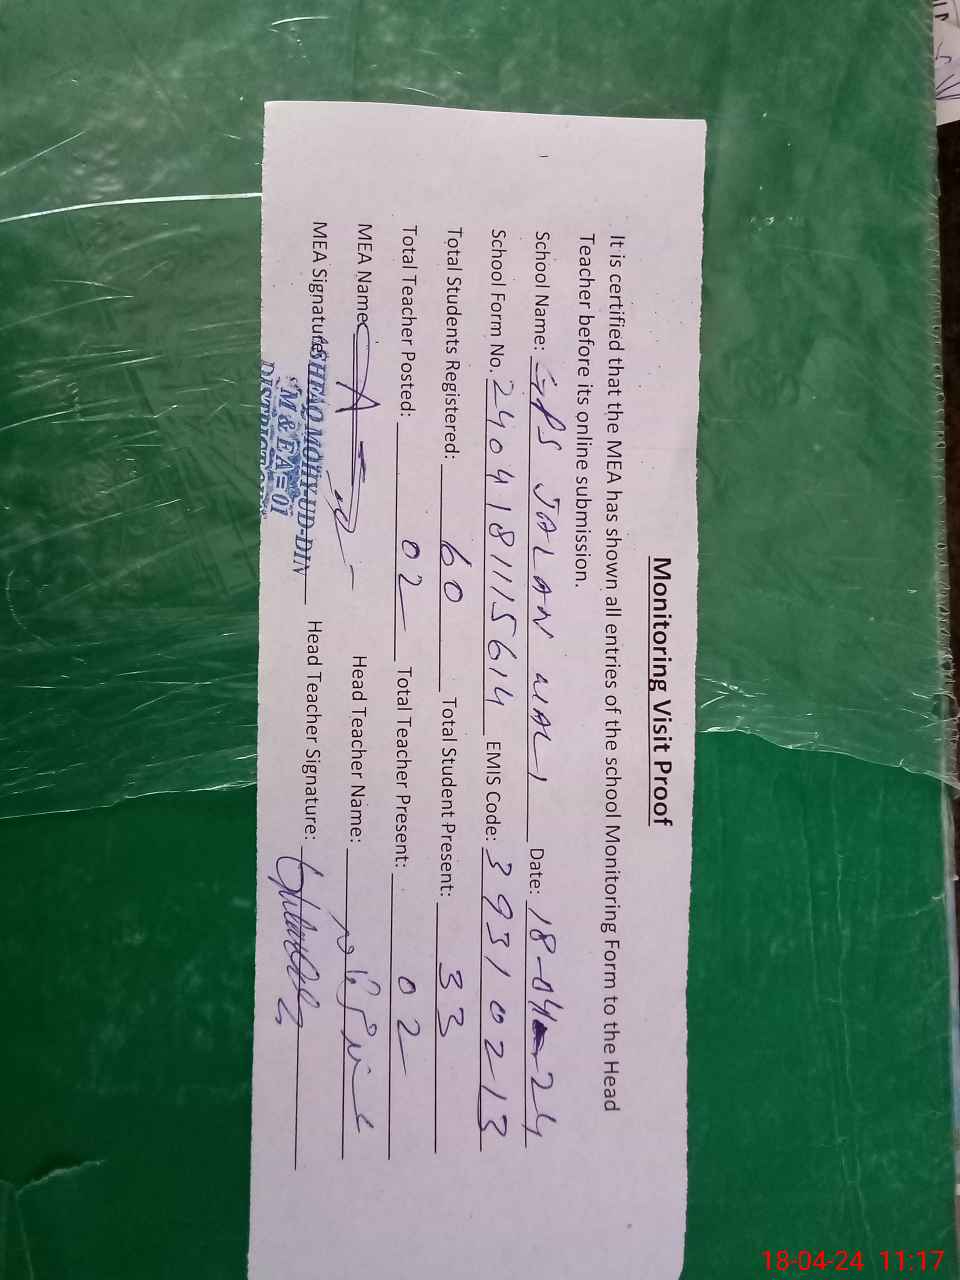 Monitoring Visit Proof
It is certified that the MEA has shown all entries of the school Monitoring Form to the Head
Teacher before its online submission.
School Name: GPS JALAN WALI Date: 18-04-24
School Form No. 2404181115614 EMIS Code: 39310213
Total Students Registered: 60 Total Student Present: 33
Total Teacher Posted: 02 Total Teacher Present: 02
MEA Name Head Teacher Name:
MEA Signature: Head Teacher Signature:
ISHFAQ MOHY-UD-DIN
M & EA = 01
18-04-24 11:17